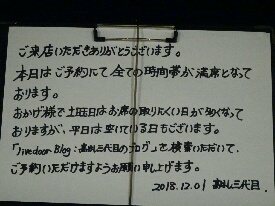 ご来店いただきありがとうございます。
本日はご予約にて全ての時間帯が満席となって
おります。
おかげ様で土曜日はお席の取りにくい日が多くなって
おりますが、平日は空いている日もございます。
「livedoor Blog：高めし三代目のブログ」を検索いただいて、
ご予約いただけますようお願い申し上げます。
2018.12.01 高めし三代目